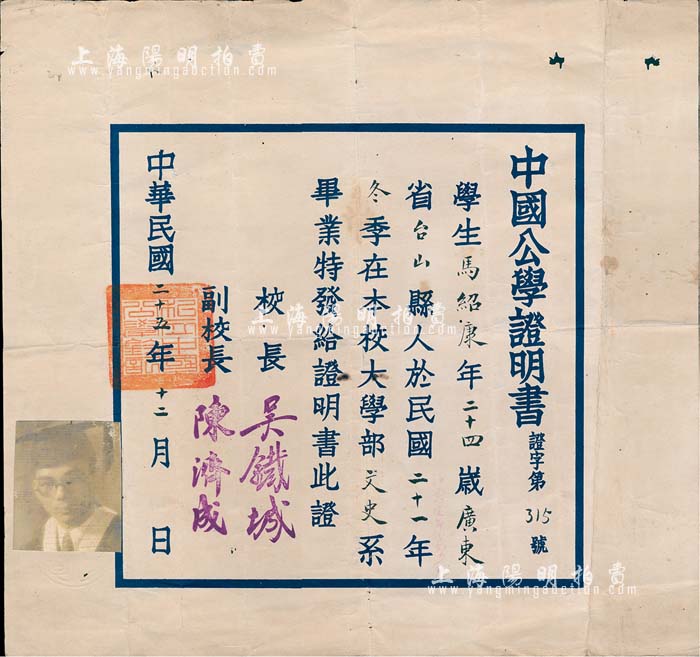 中國公學證明書 證字第315號
學生馬紹康年二十四歲廣東
省台山縣人於民國二十一年
冬季在本校大學部文史系
畢業特發給證明書此證
校長 吳鐵城
副校長 陳濟成
中華民國二十五年十二月 日
上海陽明拍賣
www.yangmingauction.com
上海陽明拍賣
www.yangmingauction.com
上海陽明拍賣
www.yangmingauction.com